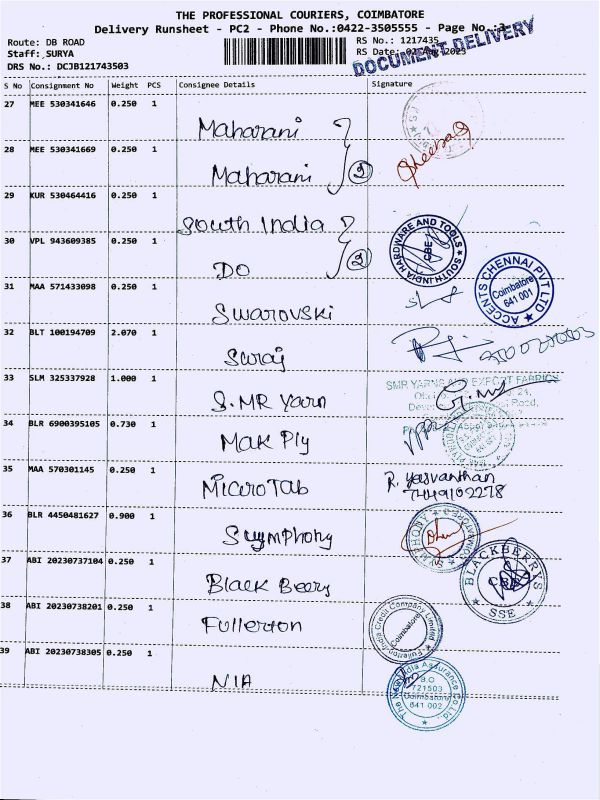 THE PROFESSIONAL COURIERS, COIMBATORE
Delivery Runsheet - PC2 - Phone No.:0422-3505555 - Page No.:3
Route: DB ROAD RS No.: 1217435
Staff: SURYA RS Date: 02-Aug-2023
DRS No.: DCJB121743503
DOCUMENT DELIVERY
S No Consignment No Weight PCS Consignee Details Signature
27 MEE 530341646 0.250 1
Maharani
28 MEE 530341669 0.250 1
Maharani 2
29 KUR 530464416 0.250 1
South India
SOUTH INDIA HARDWARE AND TOOLS CBE
30 VPL 943609385 0.250 1
DO 2
31 MAA 571433098 0.250 1
ACCENTS CHENNAI PVT LTD Coimbatore 641 001
Swarovski
32 BLT 100194709 2.070 1
Suraj
33 SLM 325337928 1.000 1
SMR YARNS AND EXPORT FABRICS
S.MR Yarn
34 BLR 6900395105 0.730 1
Mak Ply
35 MAA 570301145 0.250 1
MicroTab R. Yasvanthan
7449102278
36 BLR 4450481627 0.900 1
Symphony SYMPHONY
37 ABI 20230737104 0.250 1
BLACKBERRYS CBE SSE
Black Beery
38 ABI 20230738201 0.250 1
Fullerton Fullerton India Credit Company Limited Coimbatore
39 ABI 20230738305 0.250 1
NIA The New India Assurance Co. Ltd. B.O 721503 Coimbatore 641 002